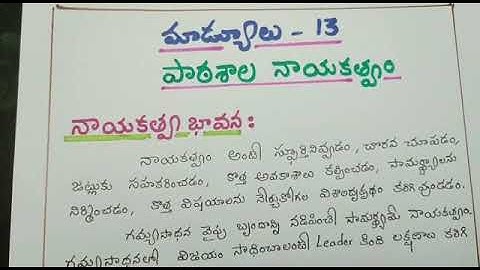 మాడ్యూలు - 13
పాఠశాల నాయకత్వం
నాయకత్వ భావన :
నాయకత్వం అంటే స్ఫూర్తినివ్వడం, చొరవ చూపడం,
జట్లుకు సహకరించడం, కొత్త అవకాశాలు కల్పించడం, సామర్థ్యాలను
నిర్మించడం, కొత్త విషయాలను నేర్చుకోగల విశాలదృక్పథం కలిగి వుండడం.
గమ్యసాధన వైపు బృందాన్ని నడిపించే సామర్థ్యమే నాయకత్వం.
గమ్యసాధనలో విజయం సాధించాలంటే Leader కింది లక్షణాలు కలిగి